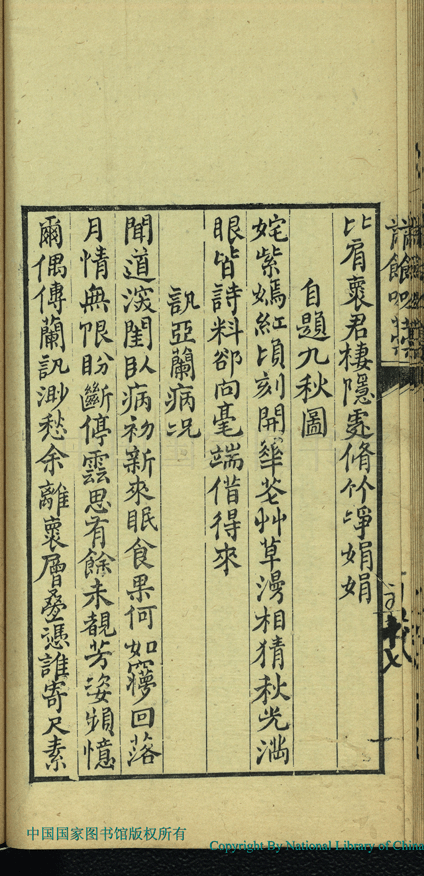 比肩裹君棲隱處脩竹埩娟娟
自題九秋圖
姹紫嫣紅頃刻開華苍艸草漫相猜秋光满
眼皆詩料郤向毫端借得來
訊亞蘭病况
聞道深閨臥病初新來眠食果何如寥回落
月情無限盼斷停雲思有餘未覩芳姿頻憶
爾偶傳蘭訊渺愁余離裹層疊憑誰寄尺素
中国国家图书馆版权所有
Copyright By National Library of China